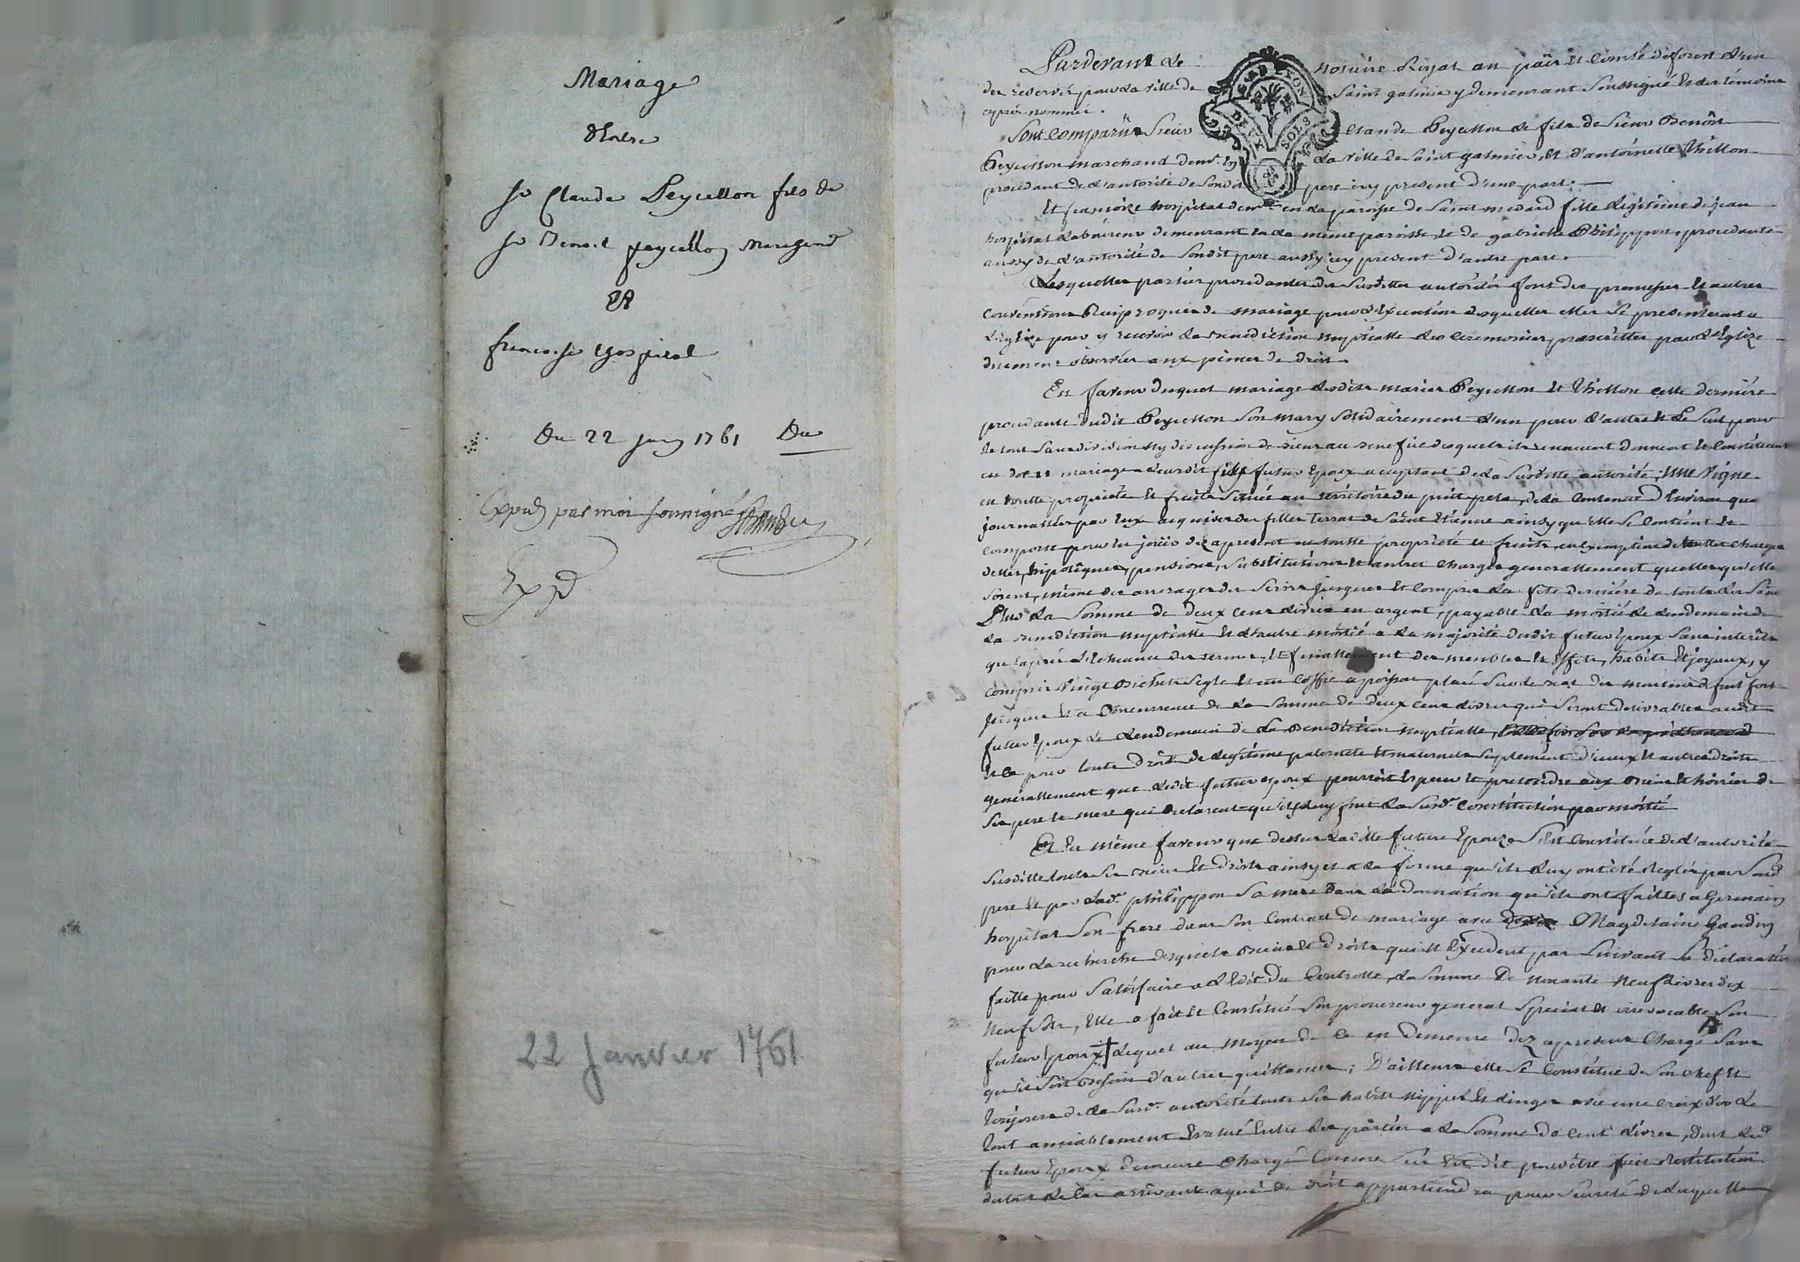 Mariage
d'Entre
Sr Claude Peycellon fils de
Sr Benoit peycellon Marchand
Et
francoise hospital
Du 22 janv 1761 Du
Expedié par moi soussigné
Expd
22 Janvier 1761
Pardevant Le notaire Royal au païs et Comté de forest L'un
des reservés pour La ville de Saint galmier y demeurant Soussigné et des témoins
après nommés.
Sont comparûs Sieur Claude Peycellon Le fils de Sieur Benoît
Peycellon marchand demt en La ville de Saint galmier, et d'antoinette Thillon
procedant de L'autorité de Sondt pere icy present d'une part.
Et françoize hospital demte en La paroisse de Saint medard fille Legitime de jean
hospital Laboureur demeurant en La même paroisse et de gabrielle Philippon, procedante
aussy de L'autorité de Sondit pere aussy icy present d'autre part.
Lesquelles parties procedantes des Susdittes autorités font des promesses et autres
conventions Reciproques de mariage pour L'Execution desquelles elles Se presenteront a
L'église pour y recevoir La benediction nuptialle Les ceremonies prescrittes par L'Eglize
duement observées aux peines de droit.
En faveur duquel mariage Lesdits mariés Peycellon et Thillon cette derniére
procedante dudit Peycellon Son mary Solidairement L'un pour L'autre et Le Seul pour
Le tout Sans division ny discussion de biens au benefice desquels ils renoncent donnent et Constituent
en dot et mariage audit futur Epoux acceptant de La Susditte autorité, Une Vigne
en toutte proprieté et fruits Située au térritoire du puit pela, de La Contenue d'Environ quatre
journalles par Eux acquise des filles Terrat de Saint Etienne ainsy qu'elle Se Contient et
comporte pour en joüir dez apresent en toutte proprieté et fruits, en Exemption de touttes charges
dettes, hipotéques, pensions, Substitutions et autres charges generallement quelles qu'elles
Soient, même des arrerages des Servis jusques et Compris La fête derniére de toutes Les Sts
Plus La Somme de deux cens Livres en argent, payable La moitié Le Lendemain de
La benediction nuptialle et L'autre moitié a La majorité dudit futur Epoux Sans interêts
qu'après L'échéance des termes, Et finallement des meubles et Effets, habits et joyaux, y
compris Vingt Bichets Segle et un Coffre a
jusques et a Concurrence de La Somme de deux cens Livres qui Seront delivrables audit
futur Epoux Le Lendemain de La benediction nuptialle
Et Ce pour touts droits de Legitime paternele et maternele Suplement d'iceux et autres droits
generallement que Ledit futur Epoux pourroit Esperer et pretendre aux biens et hoiries de
Ses pere et mere qui declarent qu'ils Luy font La Susde Constitution par moitié
Et En même faveur que dessus Laditte future Epouze S'est Constituée de L'autorité
Susditte touts Ses biens Et droits ainsy et a La forme qu'ils Luy ont été Reglés par Sondt
pere Et par Lade philippon Sa mere dans La donnation qu'ils ont faittes a Germain
hospital Son frere dans Son Contract de mariage avec Magdelaine Gaudin
pour La recherche desquels biens et droits qui n'Excedent, par Suivant La declaration
faitte pour Satisfaire a L'Edit du Controlle, La Somme De nonante neuf Livres dix
neuf Sols, Elle a fait et Constitué Son procureur general Special et irrevocable Son
futur Epoux Lequel au Moyen de Ce en Demeure dez apresent Chargé Sans
qu'il Soit besoin d'autres quittances; D'ailleurs elle Se Constitue de Son chef Et
toujours de La Susde autorité touts Ses habits nippes Et Linges avec une Croix d'or Le
tout amiablement Evalué Entre Les parties a La Somme de Cent Livres, dont Ledt
futur Epoux demeure Chargé Comme Sus Est dit pour être fait restitution
du tout Le Cas arrivant a qui de droit appartiendra pour Seureté de Laquelle